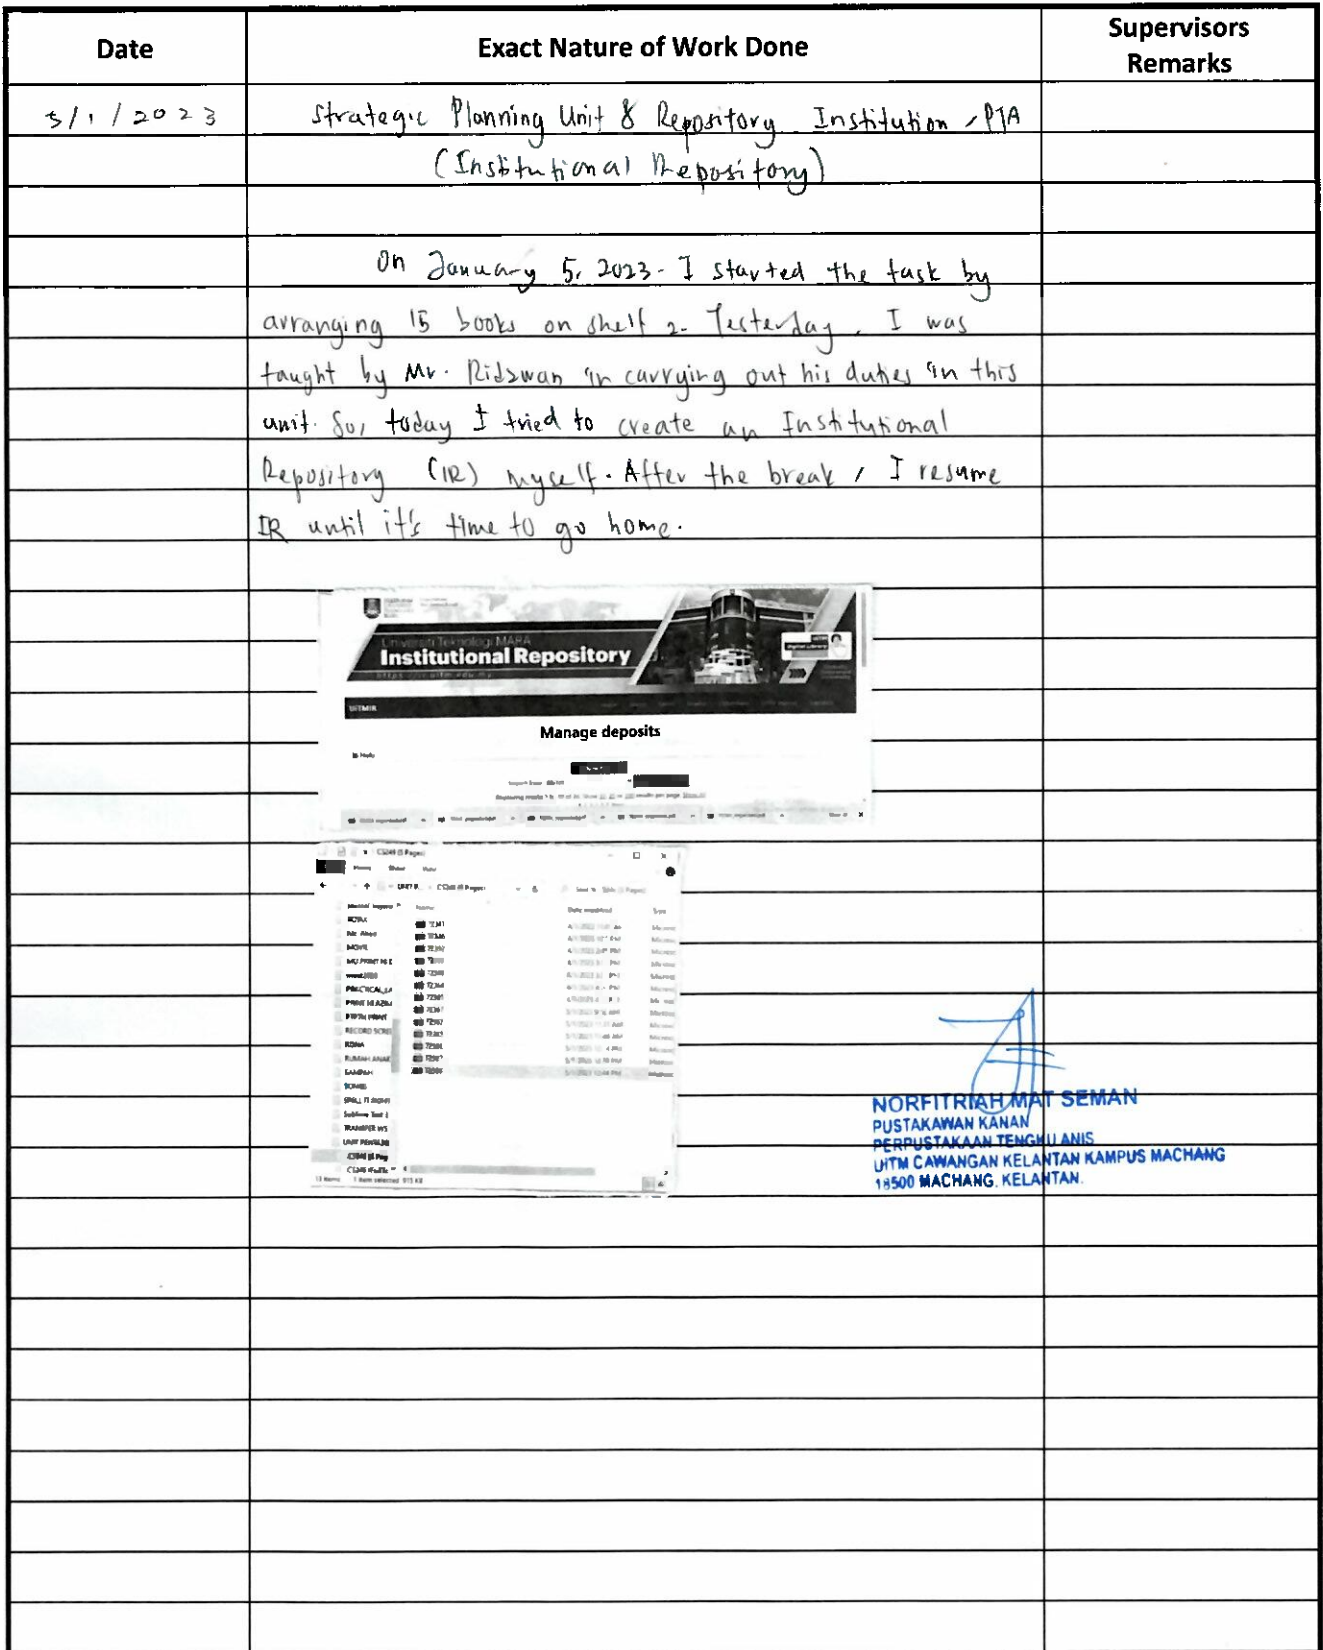 Date
Exact Nature of Work Done
Supervisors
Remarks
5/1/2023
Strategic Planning Unit & Repository Institution, PTA
(Institutional Repository)
On January 5, 2023. I started the task by
arranging 15 books on shelf 2. Yesterday, I was
taught by Mr. Ridzwan in carrying out his duties in this
unit. So, today I tried to create an Institutional
Repository (IR) myself. After the break, I resume
IR until it's time to go home.
Universiti Teknologi MARA
Institutional Repository
UiTMIR
Manage deposits
Help
CS249 (5 Pages)
Home Share View
CS249 (5 Pages)
Name Date modified
72341
RECORD SCRE
SAMPAH
TRANSFER WS
13 items 1 item selected 915 KB
NORFITRIAH MAT SEMAN
PUSTAKAWAN KANAN
PERPUSTAKAAN TENGKU ANIS
UITM CAWANGAN KELANTAN KAMPUS MACHANG
18500 MACHANG, KELANTAN.